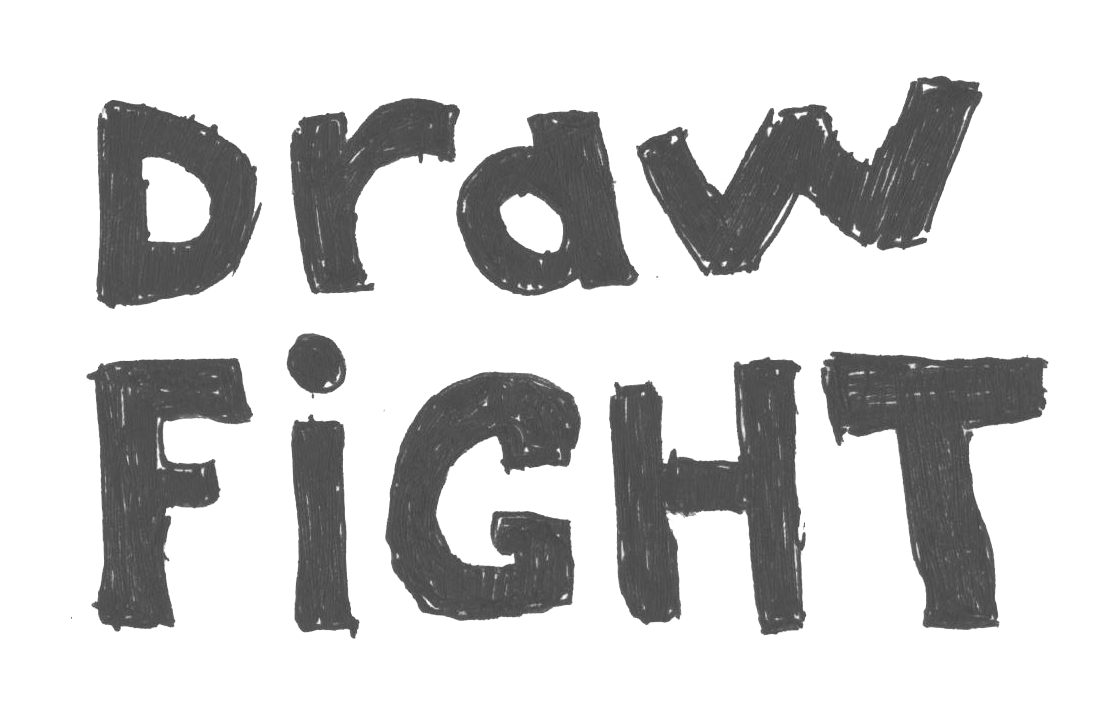 Draw
FiGHT